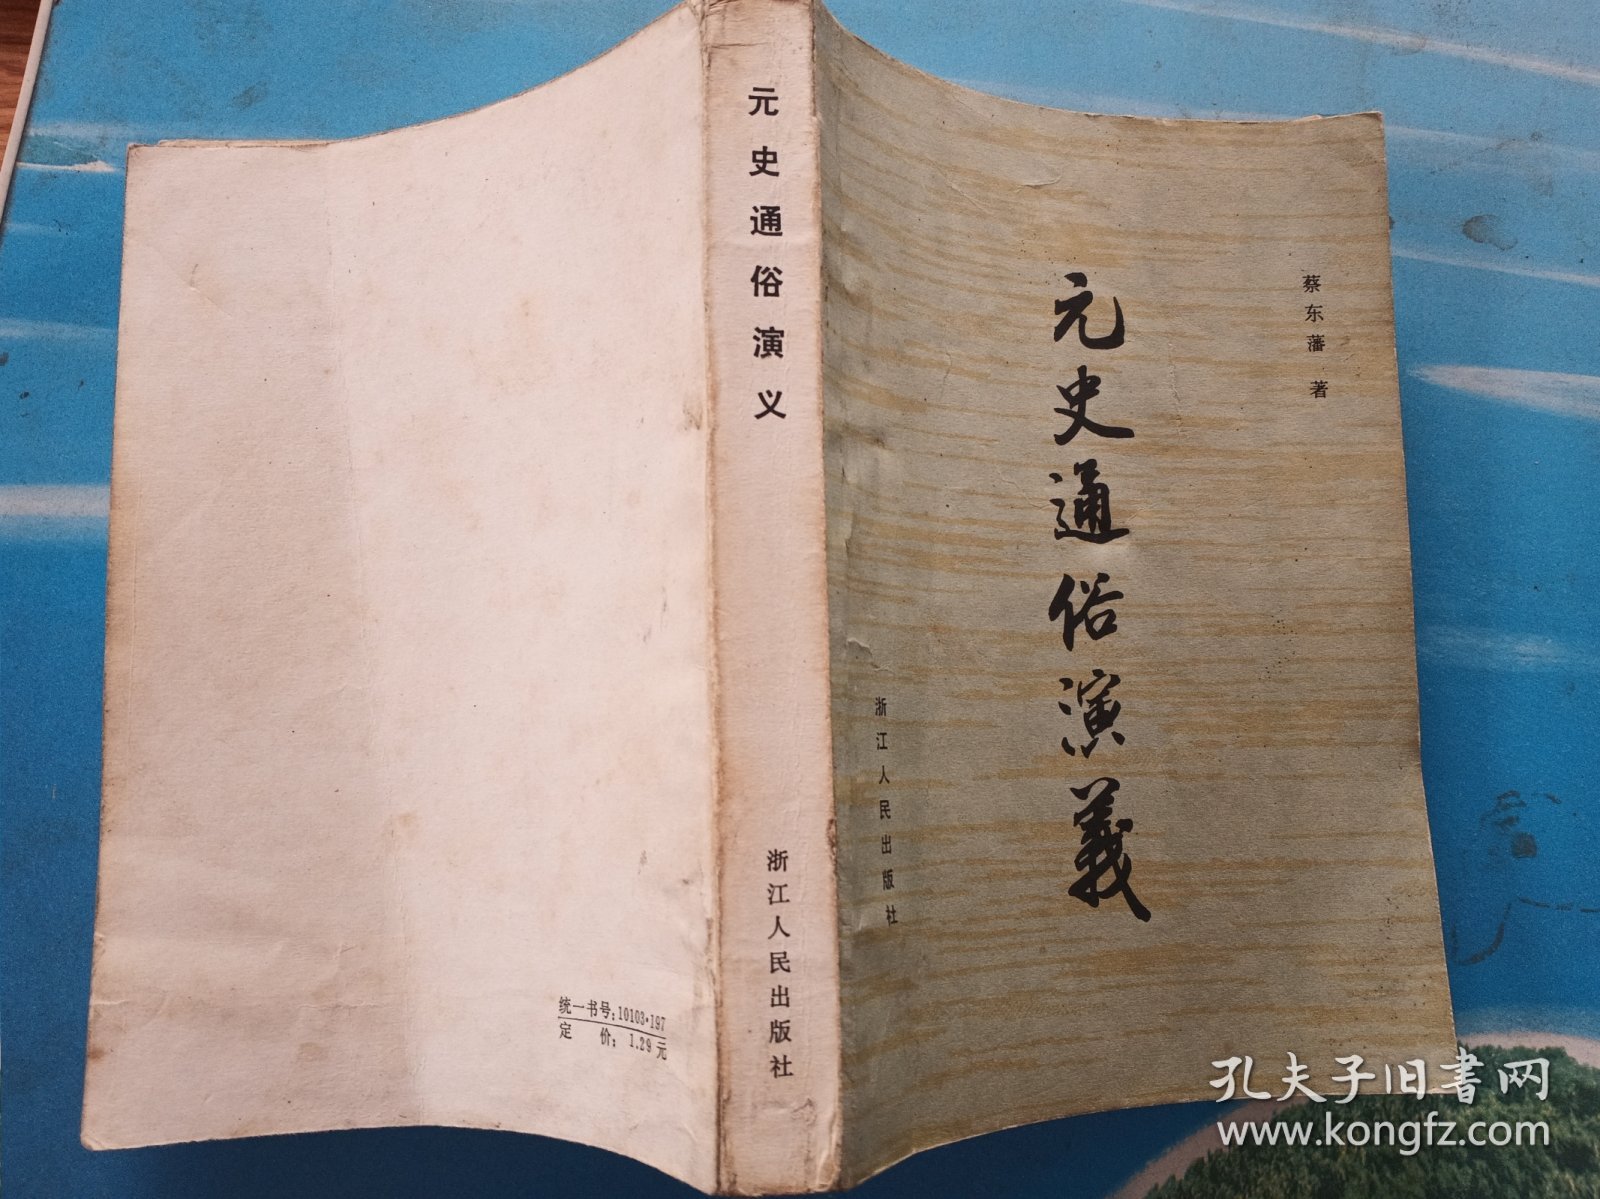 蔡东藩 著
元史通俗演義
浙江人民出版社
元史通俗演义
浙江人民出版社
统一书号:10103·197
定 价: 1.29 元
孔夫子旧書网
www.kongfz.com